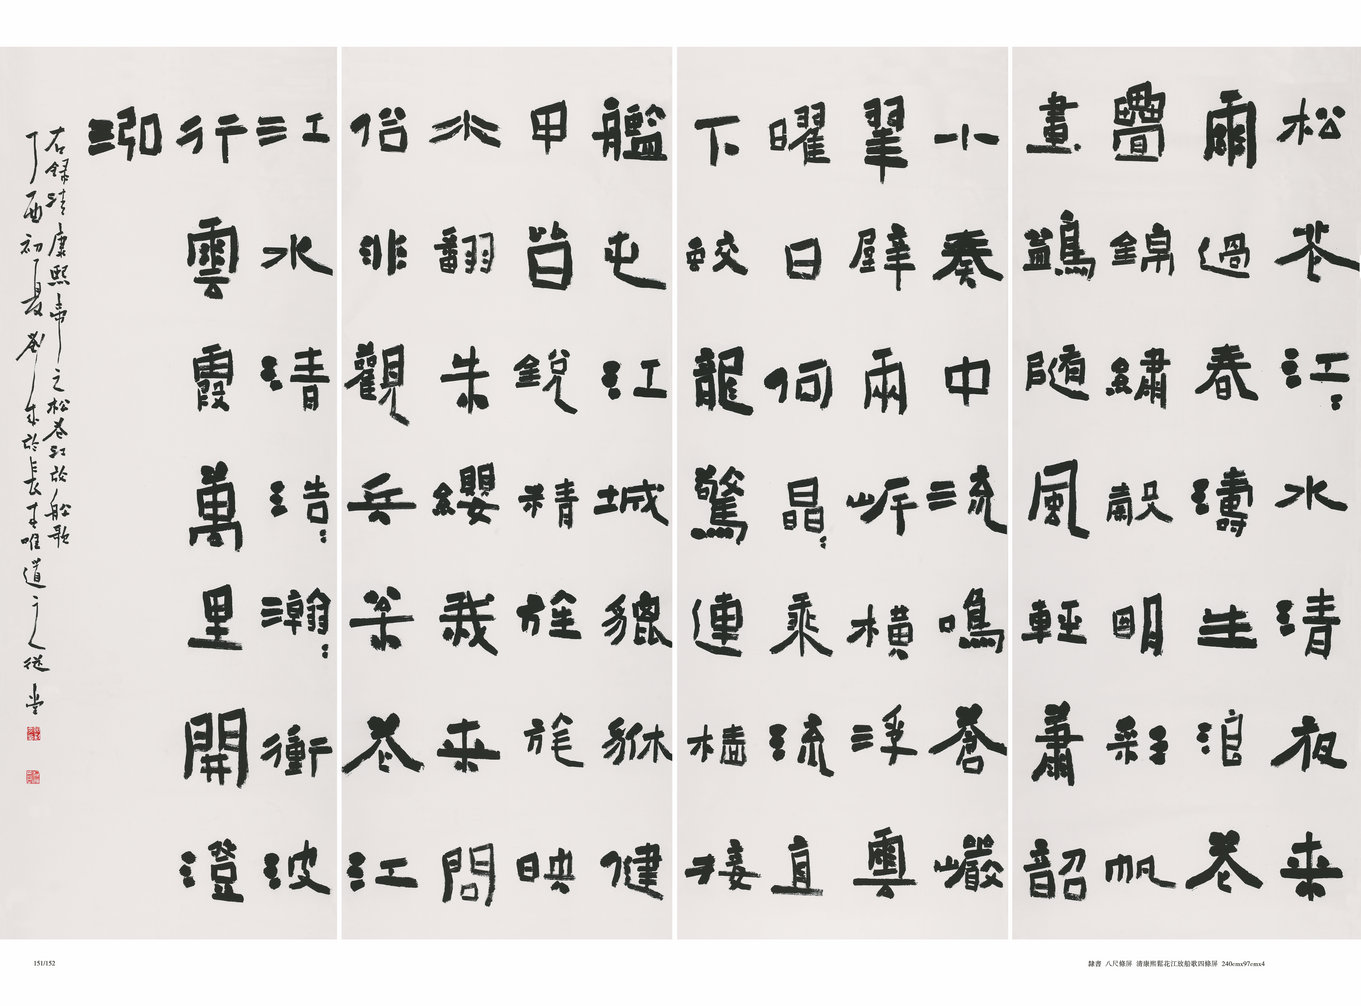 松花江〻水清夜来
雨過春濤生浪花
疊錦繡縠明彩帆
畫鷁隨風輕蕭韶
小奏中流鳴蒼巖
翠壁兩岸橫浮雲
曜日何晶〻乘流直
下蛟龍驚連檣接
艦屯江城貔貅健
甲皆銳精旌旄映
水翻朱纓我来問
俗非觀兵松花江
江水清浩〻瀚〻衝波
行雲霞萬里開澄
泓
右錄清康熙帝之松花江放船歌
丁酉初夏於長春唯道
151/152
隸書 八尺條屏 清康熙鬆花江放船歌四條屏 240cmx97cmx4